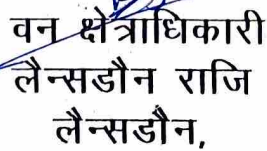 वन क्षेत्राधिकारी
लैन्सडौन राजि
लैन्सडौन,